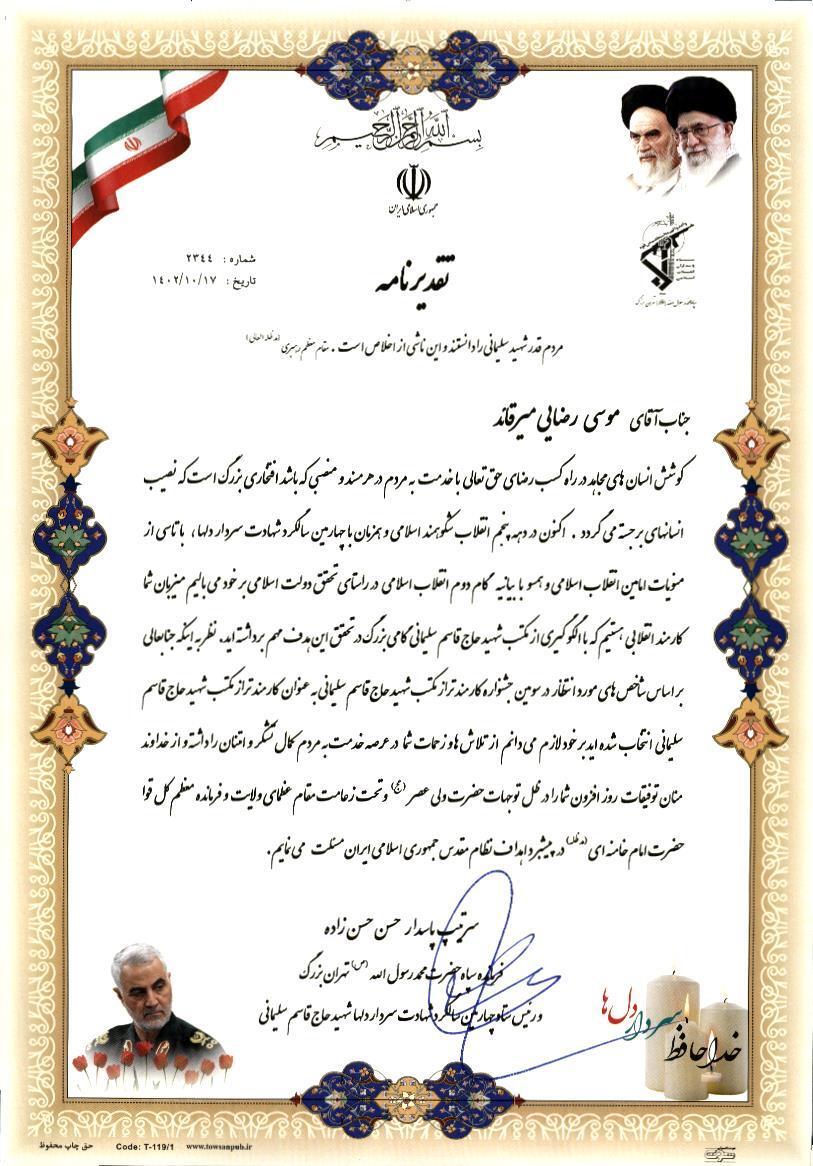 بسم الله الرحمن الرحیم
جمهوری اسلامی ایران
شماره : ٢٣٤٤
تاریخ : ١٤٠٢/١٠/١٧
تقدیرنامه
مردم قدر شهید سلیمانی را دانستند و این ناشی از اخلاص است . مقام معظم رهبری (مدظله العالی)
جناب آقای موسی رضایی میرقائد
کوشش انسان های مجاهد در راه کسب رضای حق تعالی با خدمت به مردم در هر مسند و منصبی که باشد افتخاری بزرگ است که نصیب
انسانهای برجسته می گردد . اکنون در دهه پنجم انقلاب شکوهمند اسلامی و همزمان با چهارمین سالگرد شهادت سردار دلها، با تاسی از
منویات امامین انقلاب اسلامی و همسو با بیانیه گام دوم انقلاب اسلامی در راستای تحقق دولت اسلامی بر خود می بالیم میزبان شما
کارمند انقلابی هستیم که با الگو گیری از مکتب شهید حاج قاسم سلیمانی گامی بزرگ در تحقق این هدف مهم برداشته اید. نظر به اینکه جنابعالی
بر اساس شاخص های مورد انتظار در سومین جشنواره کارمند تراز مکتب شهید حاج قاسم سلیمانی به عنوان کارمند تراز مکتب شهید حاج قاسم
سلیمانی انتخاب شده اید بر خود لازم می دانم از تلاش ها و زحمات شما در عرصه خدمت به مردم کمال تشکر و امتنان را داشته و از خداوند
منان توفیقات روز افزون شما را در ظل توجهات حضرت ولی عصر (عج) و تحت زعامت مقام عظمای ولایت و فرمانده معظم کل قوا
حضرت امام خامنه ای (مدظله) در پیشبرد اهداف نظام مقدس جمهوری اسلامی ایران مسئلت می نمایم.
سرتیپ پاسدار حسن حسن زاده
فرمانده سپاه حضرت محمد رسول الله (ص) تهران بزرگ
و رئیس ستاد چهارمین سالگرد شهادت سردار دلها شهید حاج قاسم سلیمانی
خداحافظ سردار دل ها
حق چاپ محفوظ
Code: T-119/1
www.towsanpub.ir